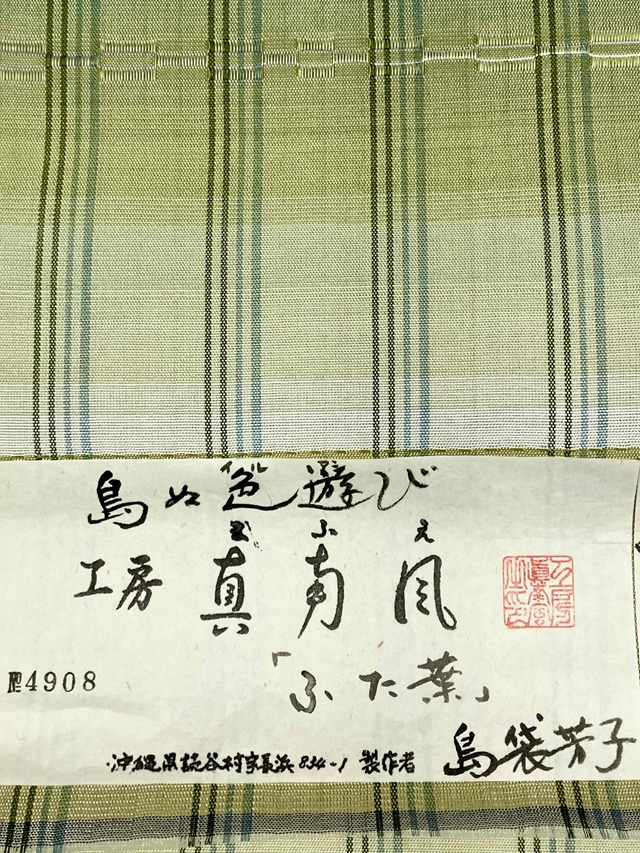 イル
島ぬ色遊び
ま ふ え
工房 真南風
「ふた葉」
4908
沖縄県読谷村字長浜 製作者 島袋芳子